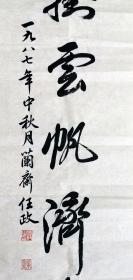 掛雲帆濟
一九八七年中秋月蘭齋任政